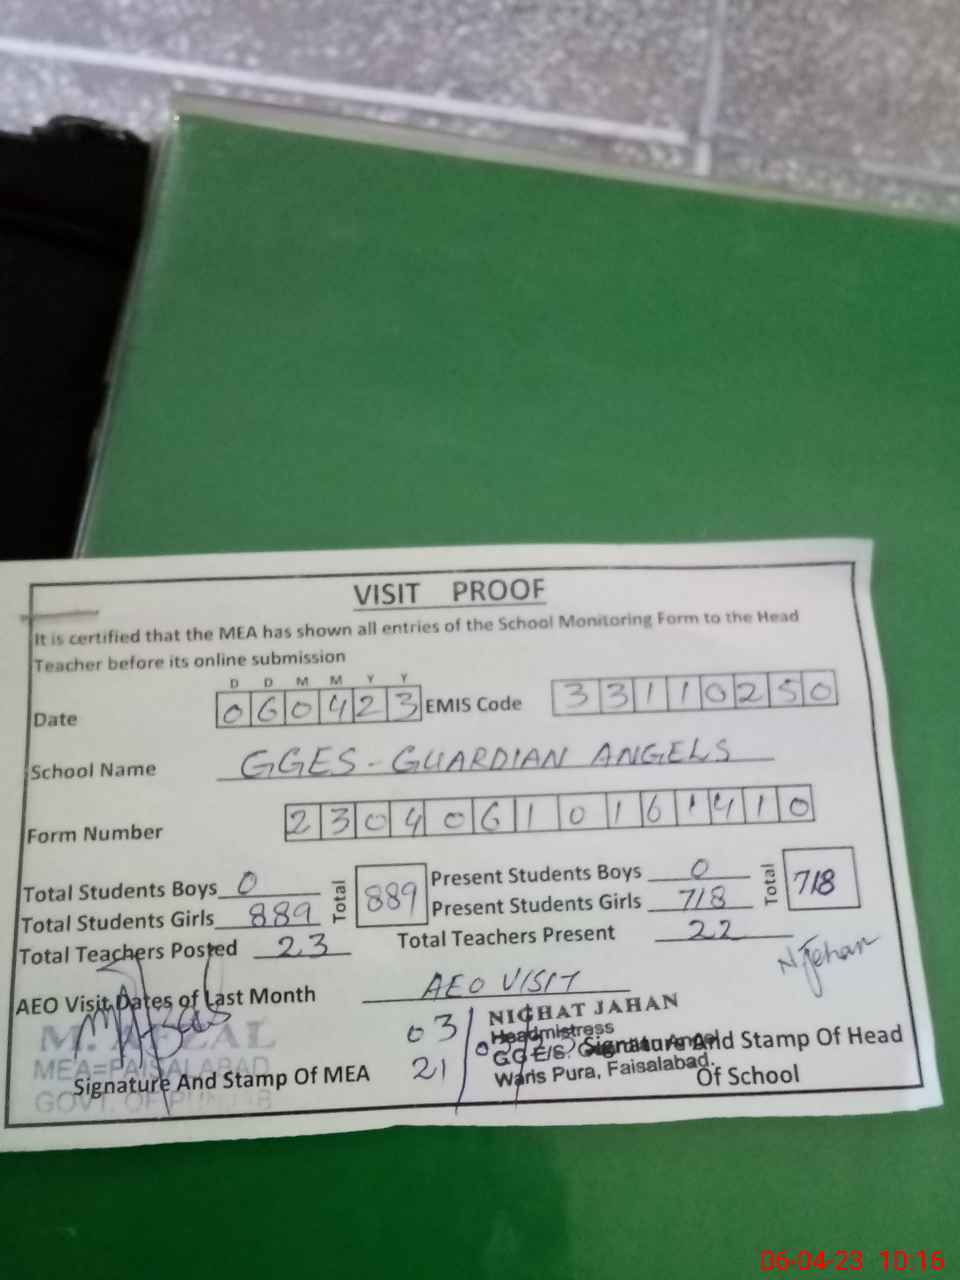 VISIT PROOF
It is certified that the MEA has shown all entries of the School Monitoring Form to the Head
Teacher before its online submission
D D M M Y Y
Date 060423 EMIS Code 33110250
School Name GGES - GUARDIAN ANGELS
Form Number 23040610161410
Total Students Boys 0 Total 889 Present Students Boys 0 Total 718
Total Students Girls 889 Present Students Girls 718
Total Teachers Posted 23 Total Teachers Present 22
NJehan
AEO Visit Dates of Last Month AEO VISIT
M. AFZAL
MEA=FAISALABAD
GOVT. OF PUNJAB
Signature And Stamp Of MEA
03
21
NIGHAT JAHAN
Headmistress
GGE/S. Guardian Angel
Waris Pura, Faisalabad.
Signature And Stamp Of Head
Of School
06-04-23 10:16